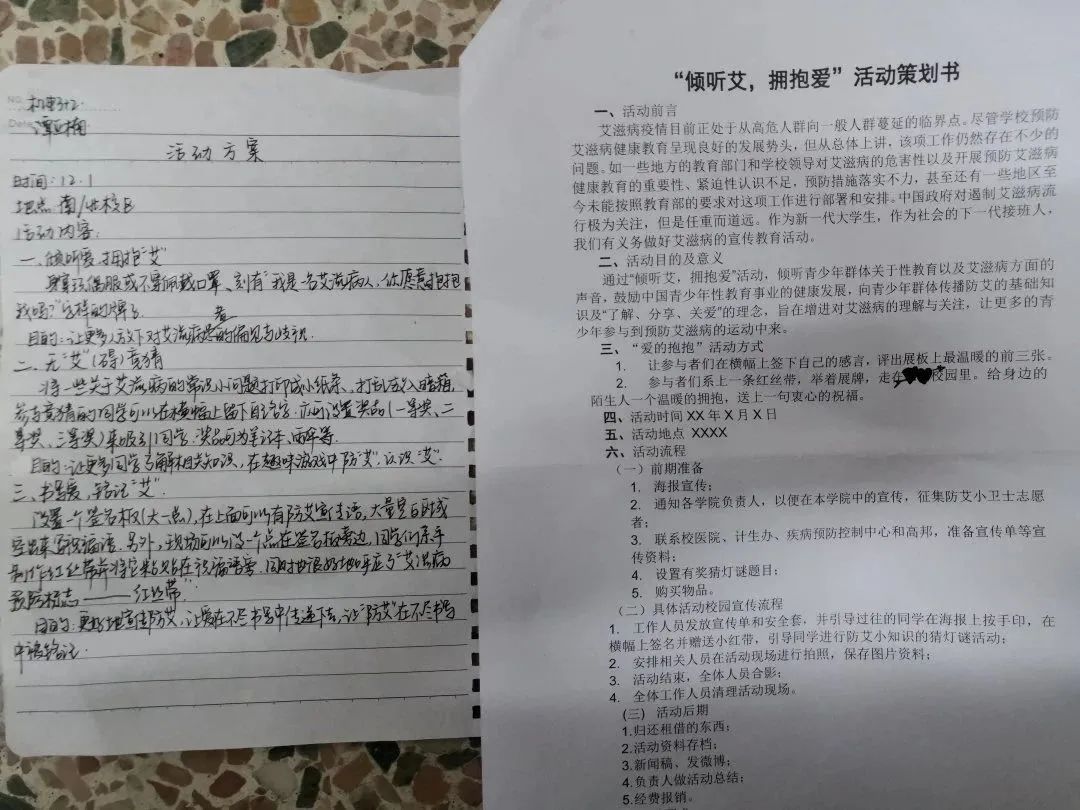 机电
活动方案
时间:12.1
地点:南/北校区
活动内容:
一、倾听爱,拥抱"艾"
身穿玩偶服或不穿佩戴口罩、刻有"我是一名艾滋病人,你愿意抱抱
我吗?"字样的牌子
目的:让更多人放下对艾滋病患者的偏见与歧视.
二、无"艾"(碍)竞猜
将一些关于艾滋病的常识小问题打印成小纸条、打乱放入暗箱,
参与竞猜的同学可以在横幅上留下自己名字.亦可设置奖品(一等奖、二
等奖、三等奖)来吸引同学.奖品可为笔记本、雨伞等.
目的:让更多同学了解相关知识,在趣味游戏中防"艾",认识"艾".
三、书写爱,铭记"艾"
设置一个签名板(大一点),在上面可以有防艾宣传语,大量空白区域
写祝福语.另外,现场可以设一个点在签名板旁边,同学们亲手
制作红丝带并将它粘贴在祝福语旁.同时也很好地呼应了"艾滋病
预防标志——红丝带"
目的:更好地宣传防艾,让爱在不尽书写中传递下去,让"防艾"在不尽书写
中被铭记.
“倾听艾,拥抱爱”活动策划书
一、活动前言
艾滋病疫情目前正处于从高危人群向一般人群蔓延的临界点。尽管学校预防
艾滋病健康教育呈现良好的发展势头,但从总体上讲,该项工作仍然存在不少的
问题。如一些地方的教育部门和学校领导对艾滋病的危害性以及开展预防艾滋病
健康教育的重要性、紧迫性认识不足,预防措施落实不力,甚至还有一些地区至
今未能按照教育部的要求对这项工作进行部署和安排。中国政府对遏制艾滋病流
行极为关注,但是任重而道远。作为新一代大学生,作为社会的下一代接班人,
我们有义务做好艾滋病的宣传教育活动。
二、活动目的及意义
通过“倾听艾,拥抱爱”活动,倾听青少年群体关于性教育以及艾滋病方面的
声音,鼓励中国青少年性教育事业的健康发展,向青少年群体传播防艾的基础知
识及“了解、分享、关爱”的理念,旨在增进对艾滋病的理解与关注,让更多的青
少年参与到预防艾滋病的运动中来。
三、“爱的抱抱”活动方式
1. 让参与者们在横幅上签下自己的感言,评出展板上最温暖的前三张。
2. 参与者们系上一条红丝带,举着展牌,走在校园里。给身边的
陌生人一个温暖的拥抱,送上一句衷心的祝福。
四、活动时间 XX 年 X 月 X 日
五、活动地点 XXXX
六、活动流程
(一)前期准备
1. 海报宣传;
2. 通知各学院负责人,以便在本学院中的宣传,征集防艾小卫士志愿
者;
3. 联系校医院、计生办、疾病预防控制中心和高邦,准备宣传单等宣
传资料;
4. 设置有奖猜灯谜题目;
5. 购买物品。
(二)具体活动校园宣传流程
1. 工作人员发放宣传单和安全套,并引导过往的同学在海报上按手印,在
横幅上签名并赠送小红带,引导同学进行防艾小知识的猜灯谜活动;
2. 安排相关人员在活动现场进行拍照,保存图片资料;
3. 活动结束,全体人员合影;
4. 全体工作人员清理活动现场。
(三)活动后期
1.归还租借的东西;
2.活动资料存档;
3.新闻稿、发微博;
4.负责人做活动总结;
5.经费报销。